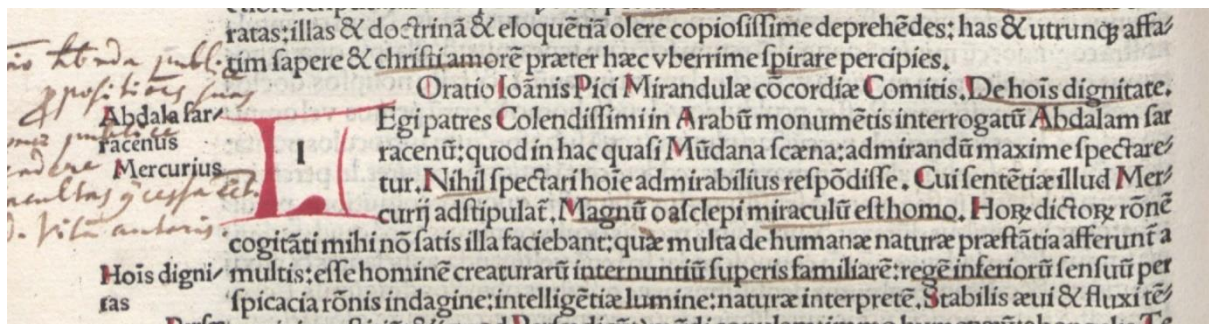 ratas:illas & doctrinā & eloquētiā olere copiosissime deprehēdes: has & utrunqꝫ affa⸗
tim sapere & christi amorē præter hæc vberrime spirare percipies.
Oratio Ioānis Pici Mirandulæ cōcordiæ Comitis. De hoīs dignitate.
Abdala sar⸗
racenus
Mercurius
LEgi patres Colendissimi in Arabū monumētis interrogatū Abdalam sar
racenū: quod in hac quasi Mūdana scæna: admirandū maxime spectare⸗
tur. Nihil spectari hoīe admirabilius respōdisse. Cui sentētiæ illud Mer⸗
curij adstipulat̄. Magnū o asclepi miraculū est homo. Hoꝝ dictoꝝ rōnē
cogitāti mihi nō satis illa faciebant: quæ multa de humanæ naturæ præstātia afferunt̄ a
Hoīs digni⸗
tas
multis: esse hominē creaturarū internuntiū superis familiarē: regē inferiorū sensuū per
spicacia rōnis indagine: intelligētiæ lumine: naturæ interpretē. Stabilis æui & fluxi tē⸗